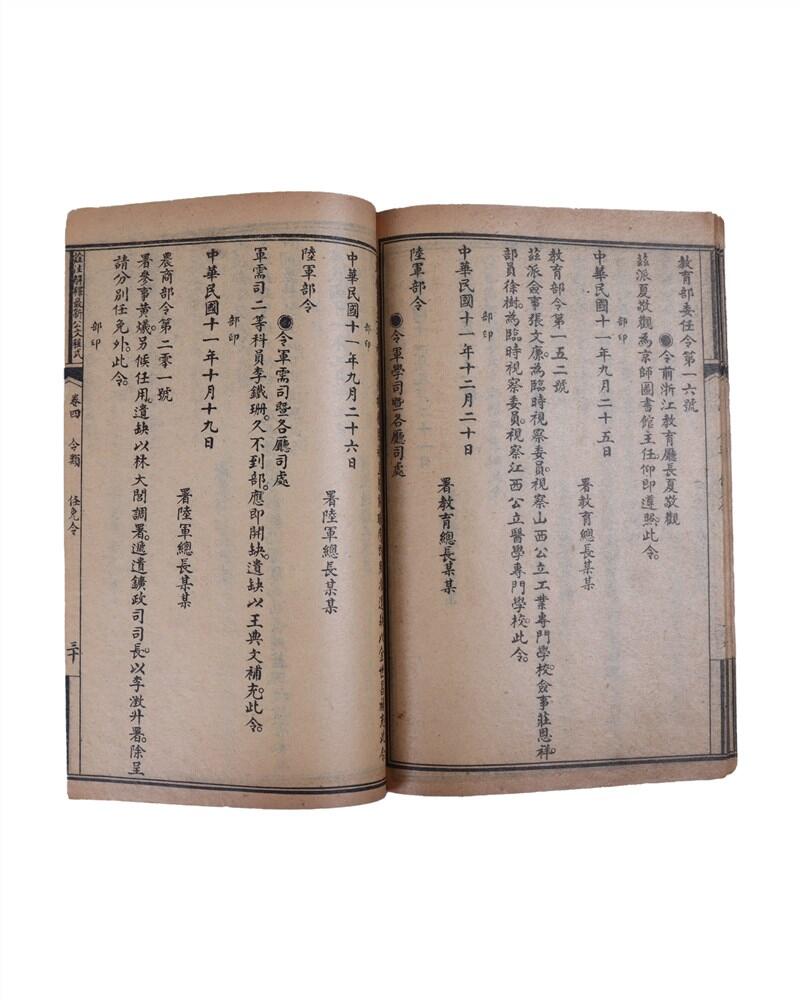 教育部委任令第一六號
●令前浙江教育廳長夏敬觀
茲派夏敬觀為京師圖書館主任仰即遵照。此令。
部印
中華民國十一年九月二十五日
署教育總長某某
教育部令第一五二號
茲派僉事張文廉為臨時視察委員。視察山西公立工業專門學校。僉事莊恩祥。
部員徐樹。為臨時視察委員。視察江西公立醫學專門學校。此令。
部印
中華民國十一年十二月二十日
署教育總長某某
陸軍部令
●令軍學司暨各廳司處
部印
中華民國十一年九月二十六日
署陸軍總長某某
陸軍部令
●令軍需司暨各廳司處
軍需司二等科員李鐵珊。久不到部。應即開缺。遺缺以王典文補充。此令。
部印
中華民國十一年十月十九日
署陸軍總長某某
農商部令第二零一號
署參事黃爔另候任用。遺缺以林大閭調署。遞遺鑛政司司長。以李澂升署。除呈
請分別任免外。此令。
部印
註解釋最新公文程式
卷四
令類
任免令
三十